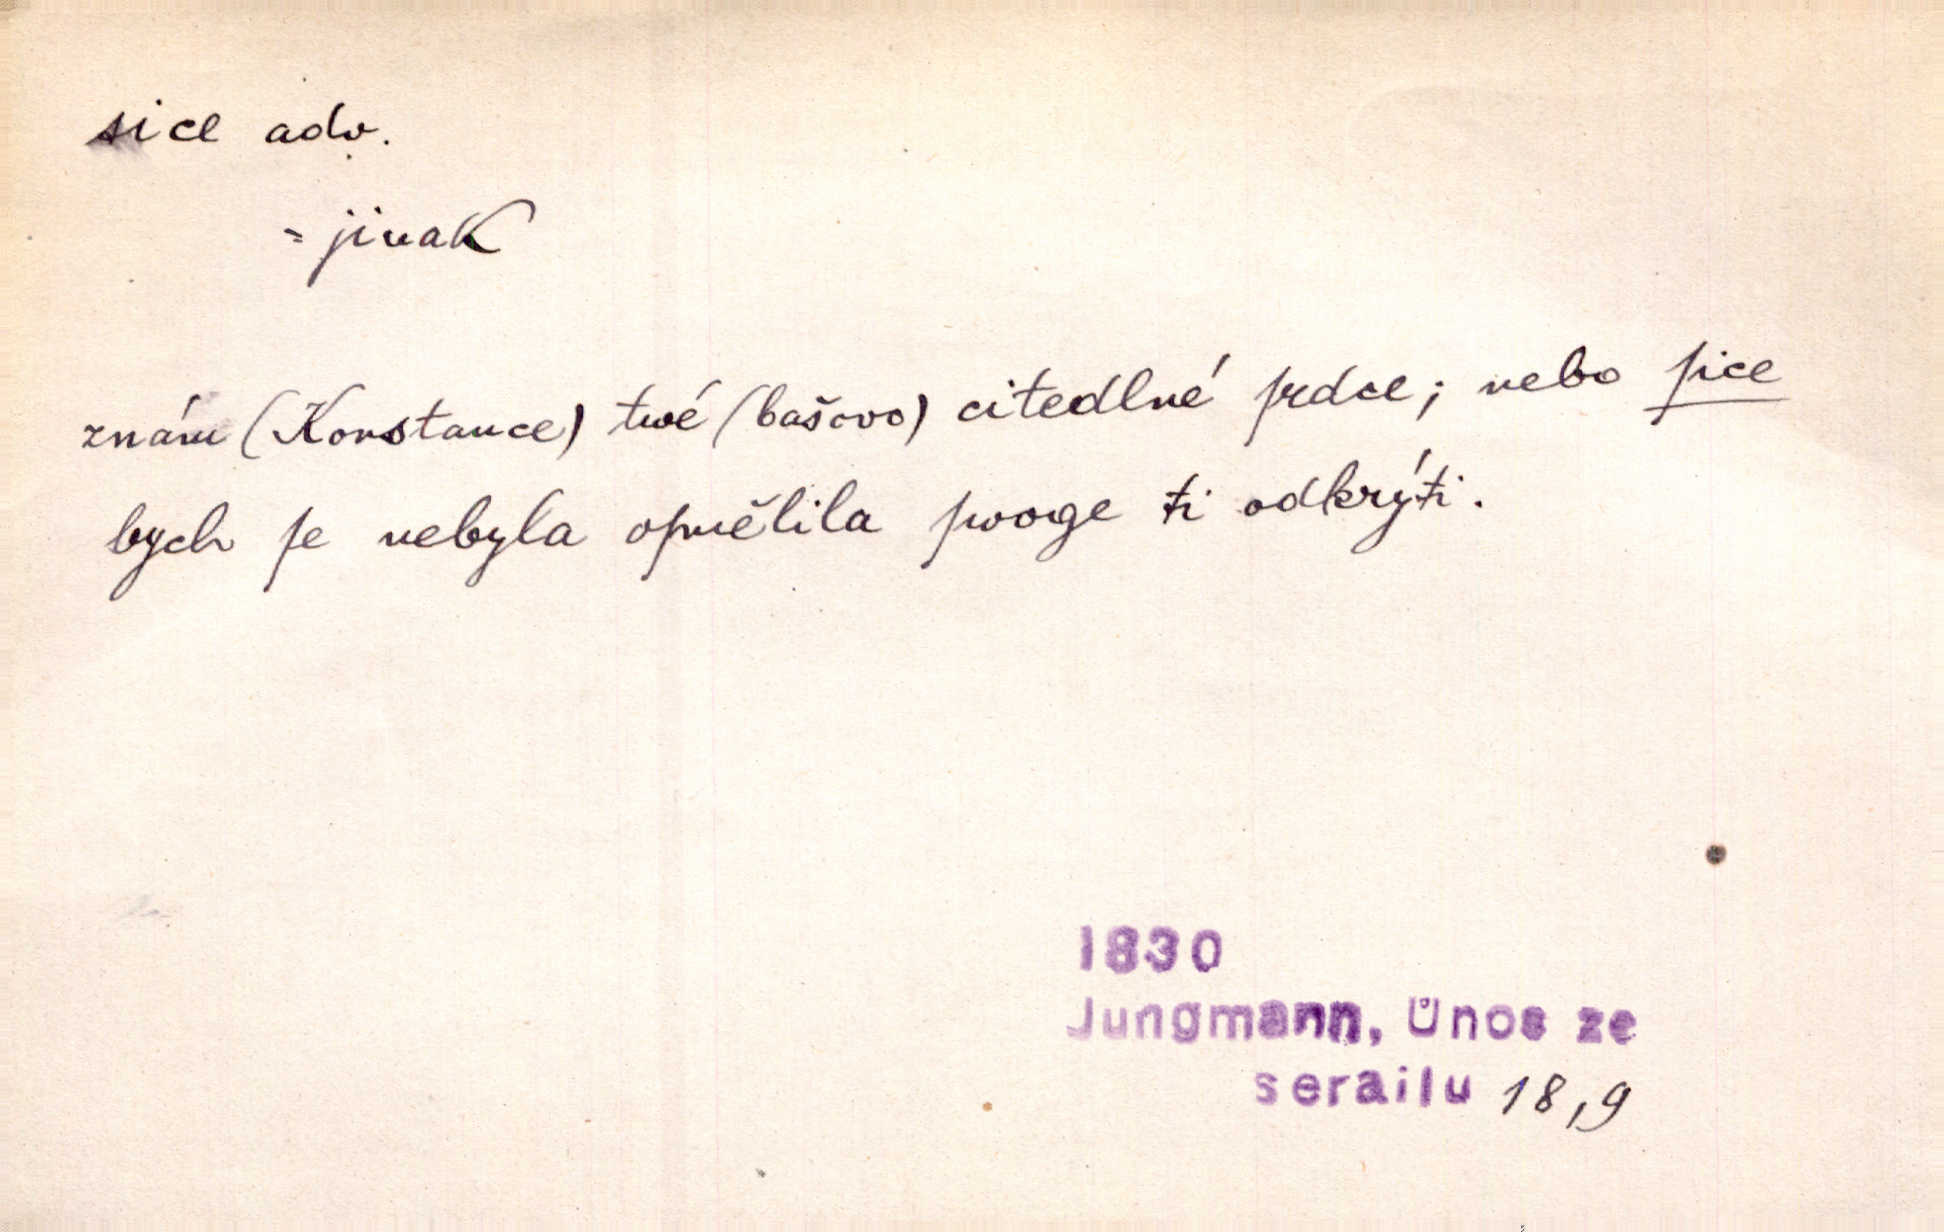 sice adv.
= jinak
znám (Konstance) twé (bašovo) citedlné ſrdce; nebo ſice
bych ſe nebyla oſmělila ſwoge ti odkrýti.
1830
Jungmann, Únos ze
serailu 18,9